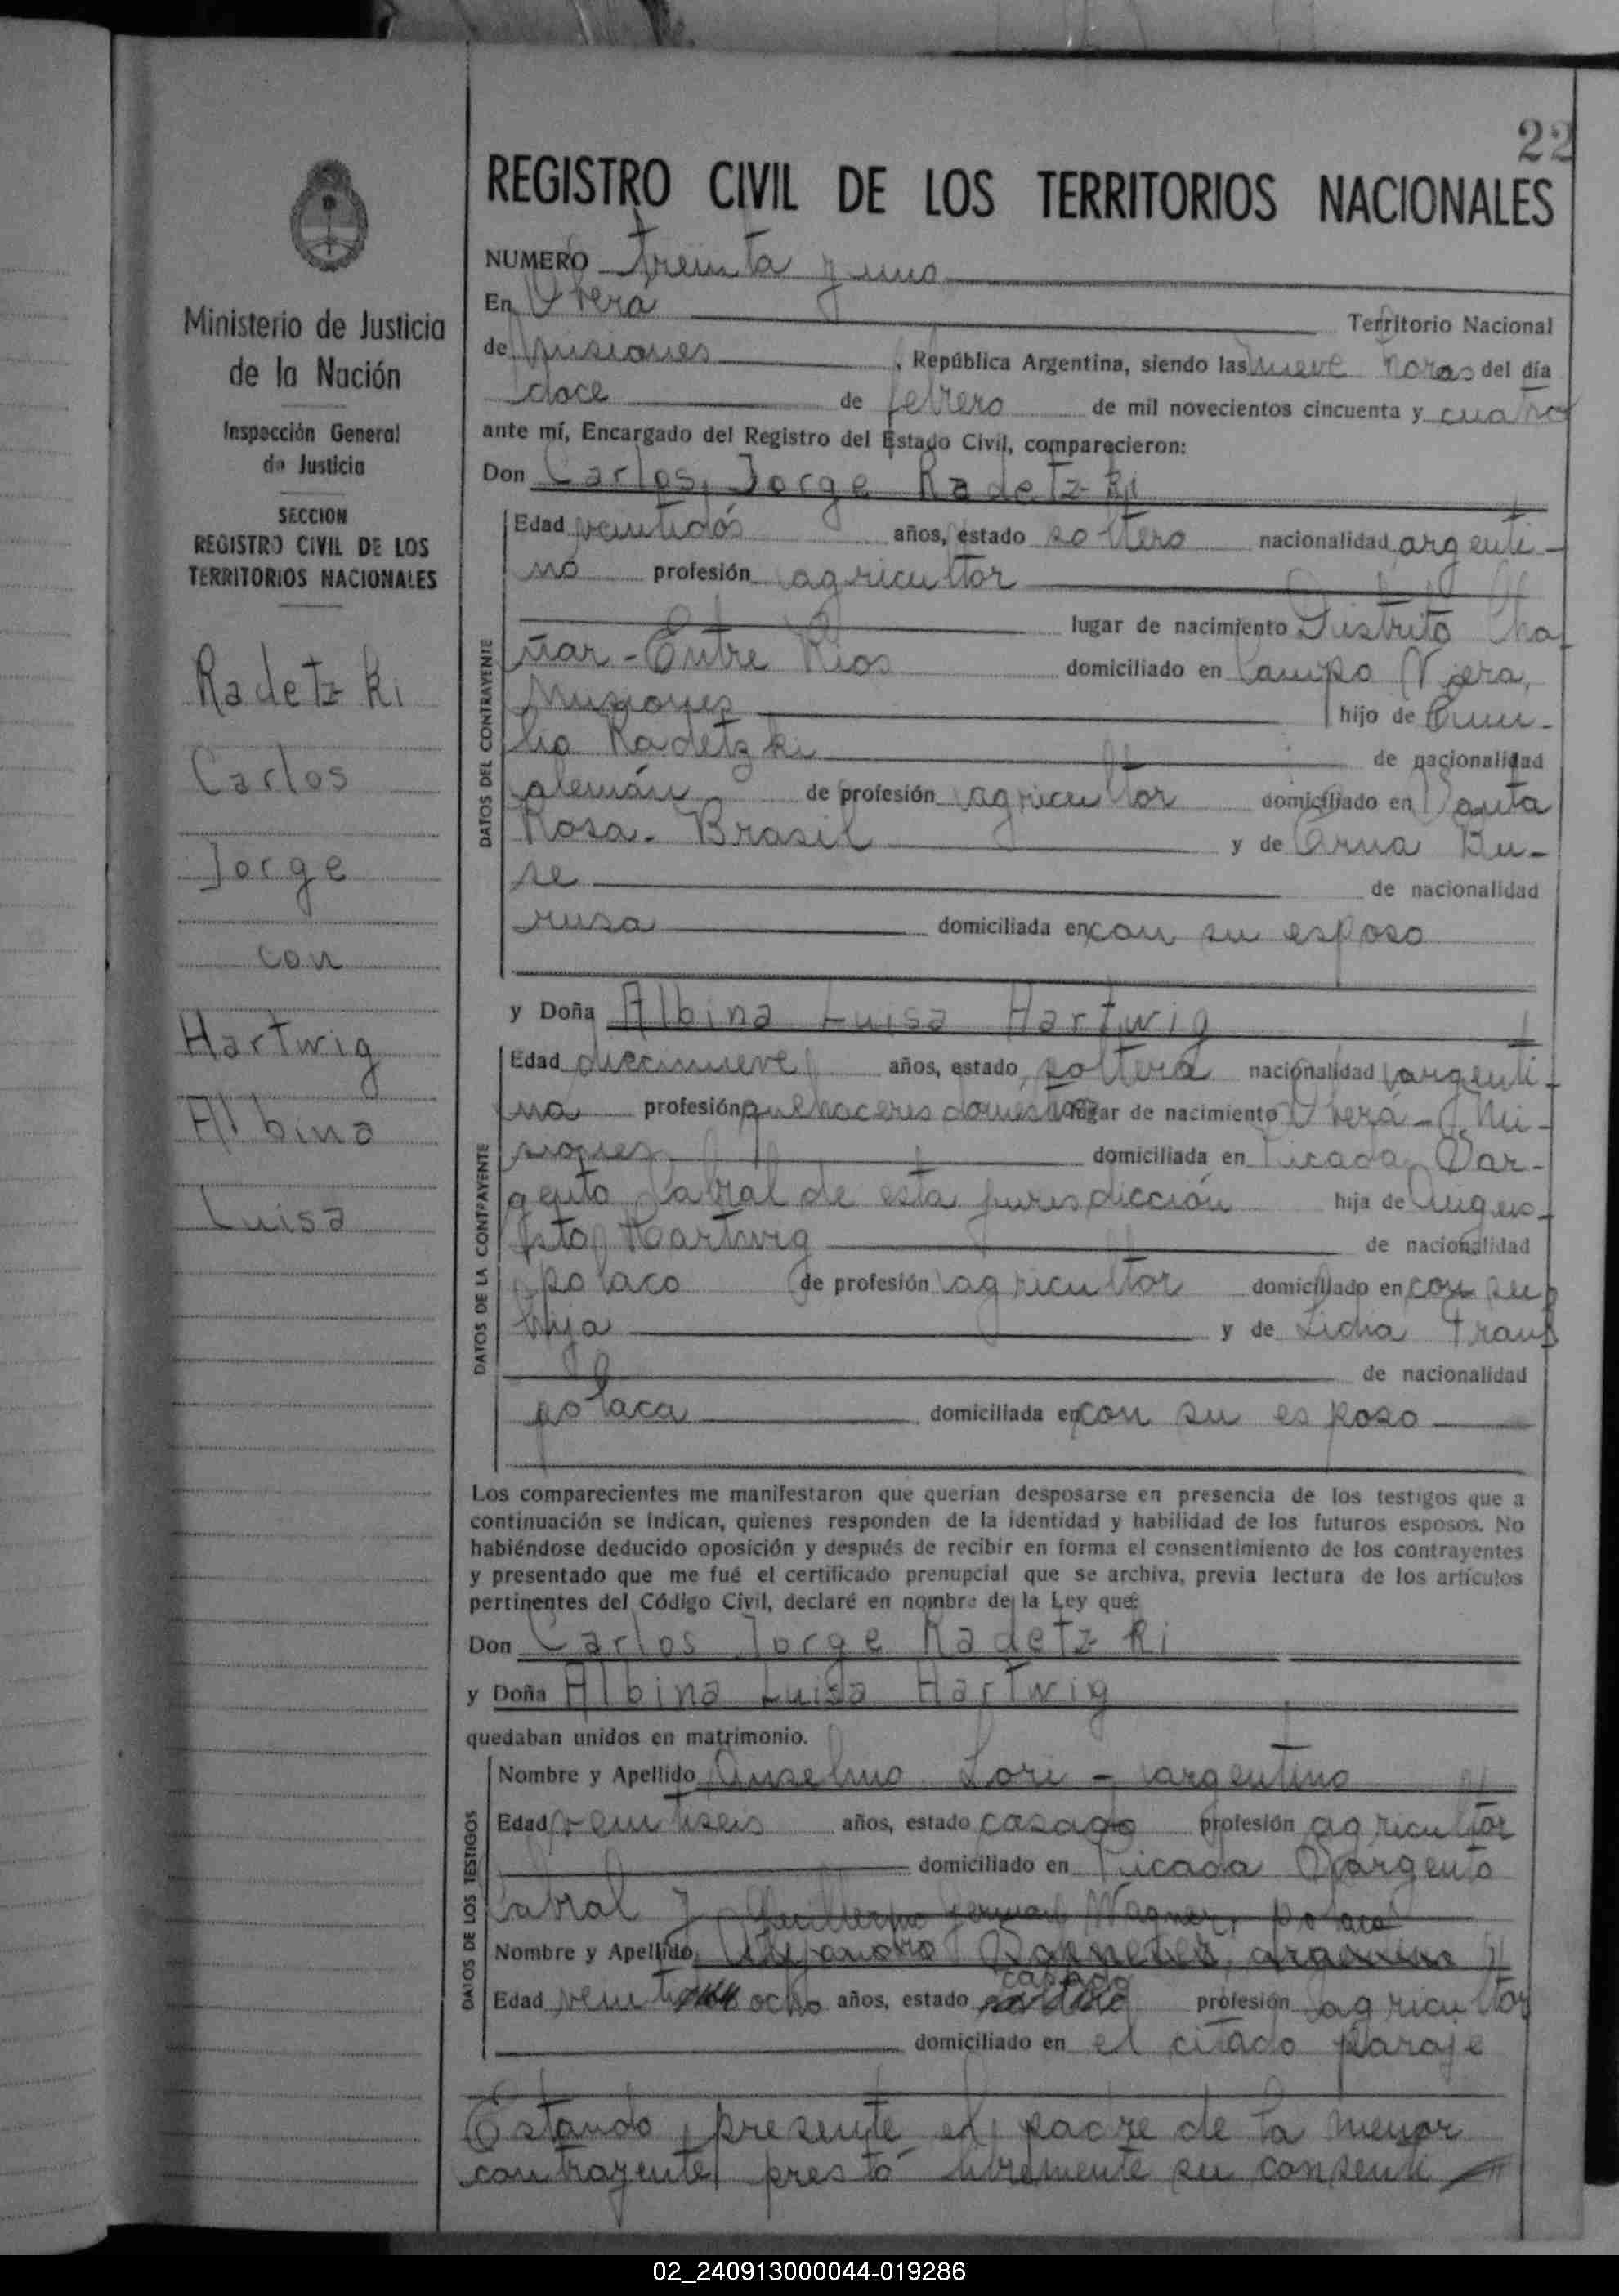 22
REGISTRO CIVIL DE LOS TERRITORIOS NACIONALES
Ministerio de Justicia
de la Nación
Inspección General
de Justicia
SECCION
REGISTRO CIVIL DE LOS
TERRITORIOS NACIONALES
Radetzki
Carlos
Jorge
con
Hartwig
Albina
Luisa
NUMERO treinta y uno
En Oberá Territorio Nacional
de Misiones, República Argentina, siendo las nueve horas del día
doce de febrero de mil novecientos cincuenta y cuatro
ante mí, Encargado del Registro del Estado Civil, comparecieron:
Don Carlos Jorge Radetzki
DATOS DEL CONTRAYENTE
Edad veintidós años, estado soltero nacionalidad argenti-
no profesión agricultor
lugar de nacimiento Distrito Cha-
ñar - Entre Rios domiciliado en Campo Viera,
Misiones hijo de Emi-
lio Radetzki de nacionalidad
alemán de profesión agricultor domiciliado en Santa
Rosa - Brasil y de Anna Bu-
se de nacionalidad
rusa domiciliada en con su esposo
y Doña Albina Luisa Hartwig
DATOS DE LA CONTRAYENTE
Edad diecinueve años, estado soltera nacionalidad argenti-
na profesión quehaceres domésticos lugar de nacimiento Oberá - Mi-
siones domiciliada en Picada Sar-
gento Cabral de esta jurisdicción hija de Augus-
to Hartwig de nacionalidad
polaco de profesión agricultor domiciliado en con su
hija y de Lidia
de nacionalidad
polaca domiciliada en con su esposo
Los comparecientes me manifestaron que querían desposarse en presencia de los testigos que a
continuación se indican, quienes responden de la identidad y habilidad de los futuros esposos. No
habiéndose deducido oposición y después de recibir en forma el consentimiento de los contrayentes
y presentado que me fué el certificado prenupcial que se archiva, previa lectura de los artículos
pertinentes del Código Civil, declaré en nombre de la Ley que:
Don Carlos Jorge Radetzki
y Doña Albina Luisa Hartwig
quedaban unidos en matrimonio.
DATOS DE LOS TESTIGOS
Nombre y Apellido Anselmo Lori - argentino
Edad veintiseis años, estado casado profesión agricultor
domiciliado en Picada Sargento
Cabral y Guillermo German Wagner, polaco
Nombre y Apellido Alejandro
Edad veinti ocho años, estado casado profesión agricultor
domiciliado en el citado paraje
Estando presente el padre de la menor
contrayente prestó libremente su consenti
02_240913000044-019286